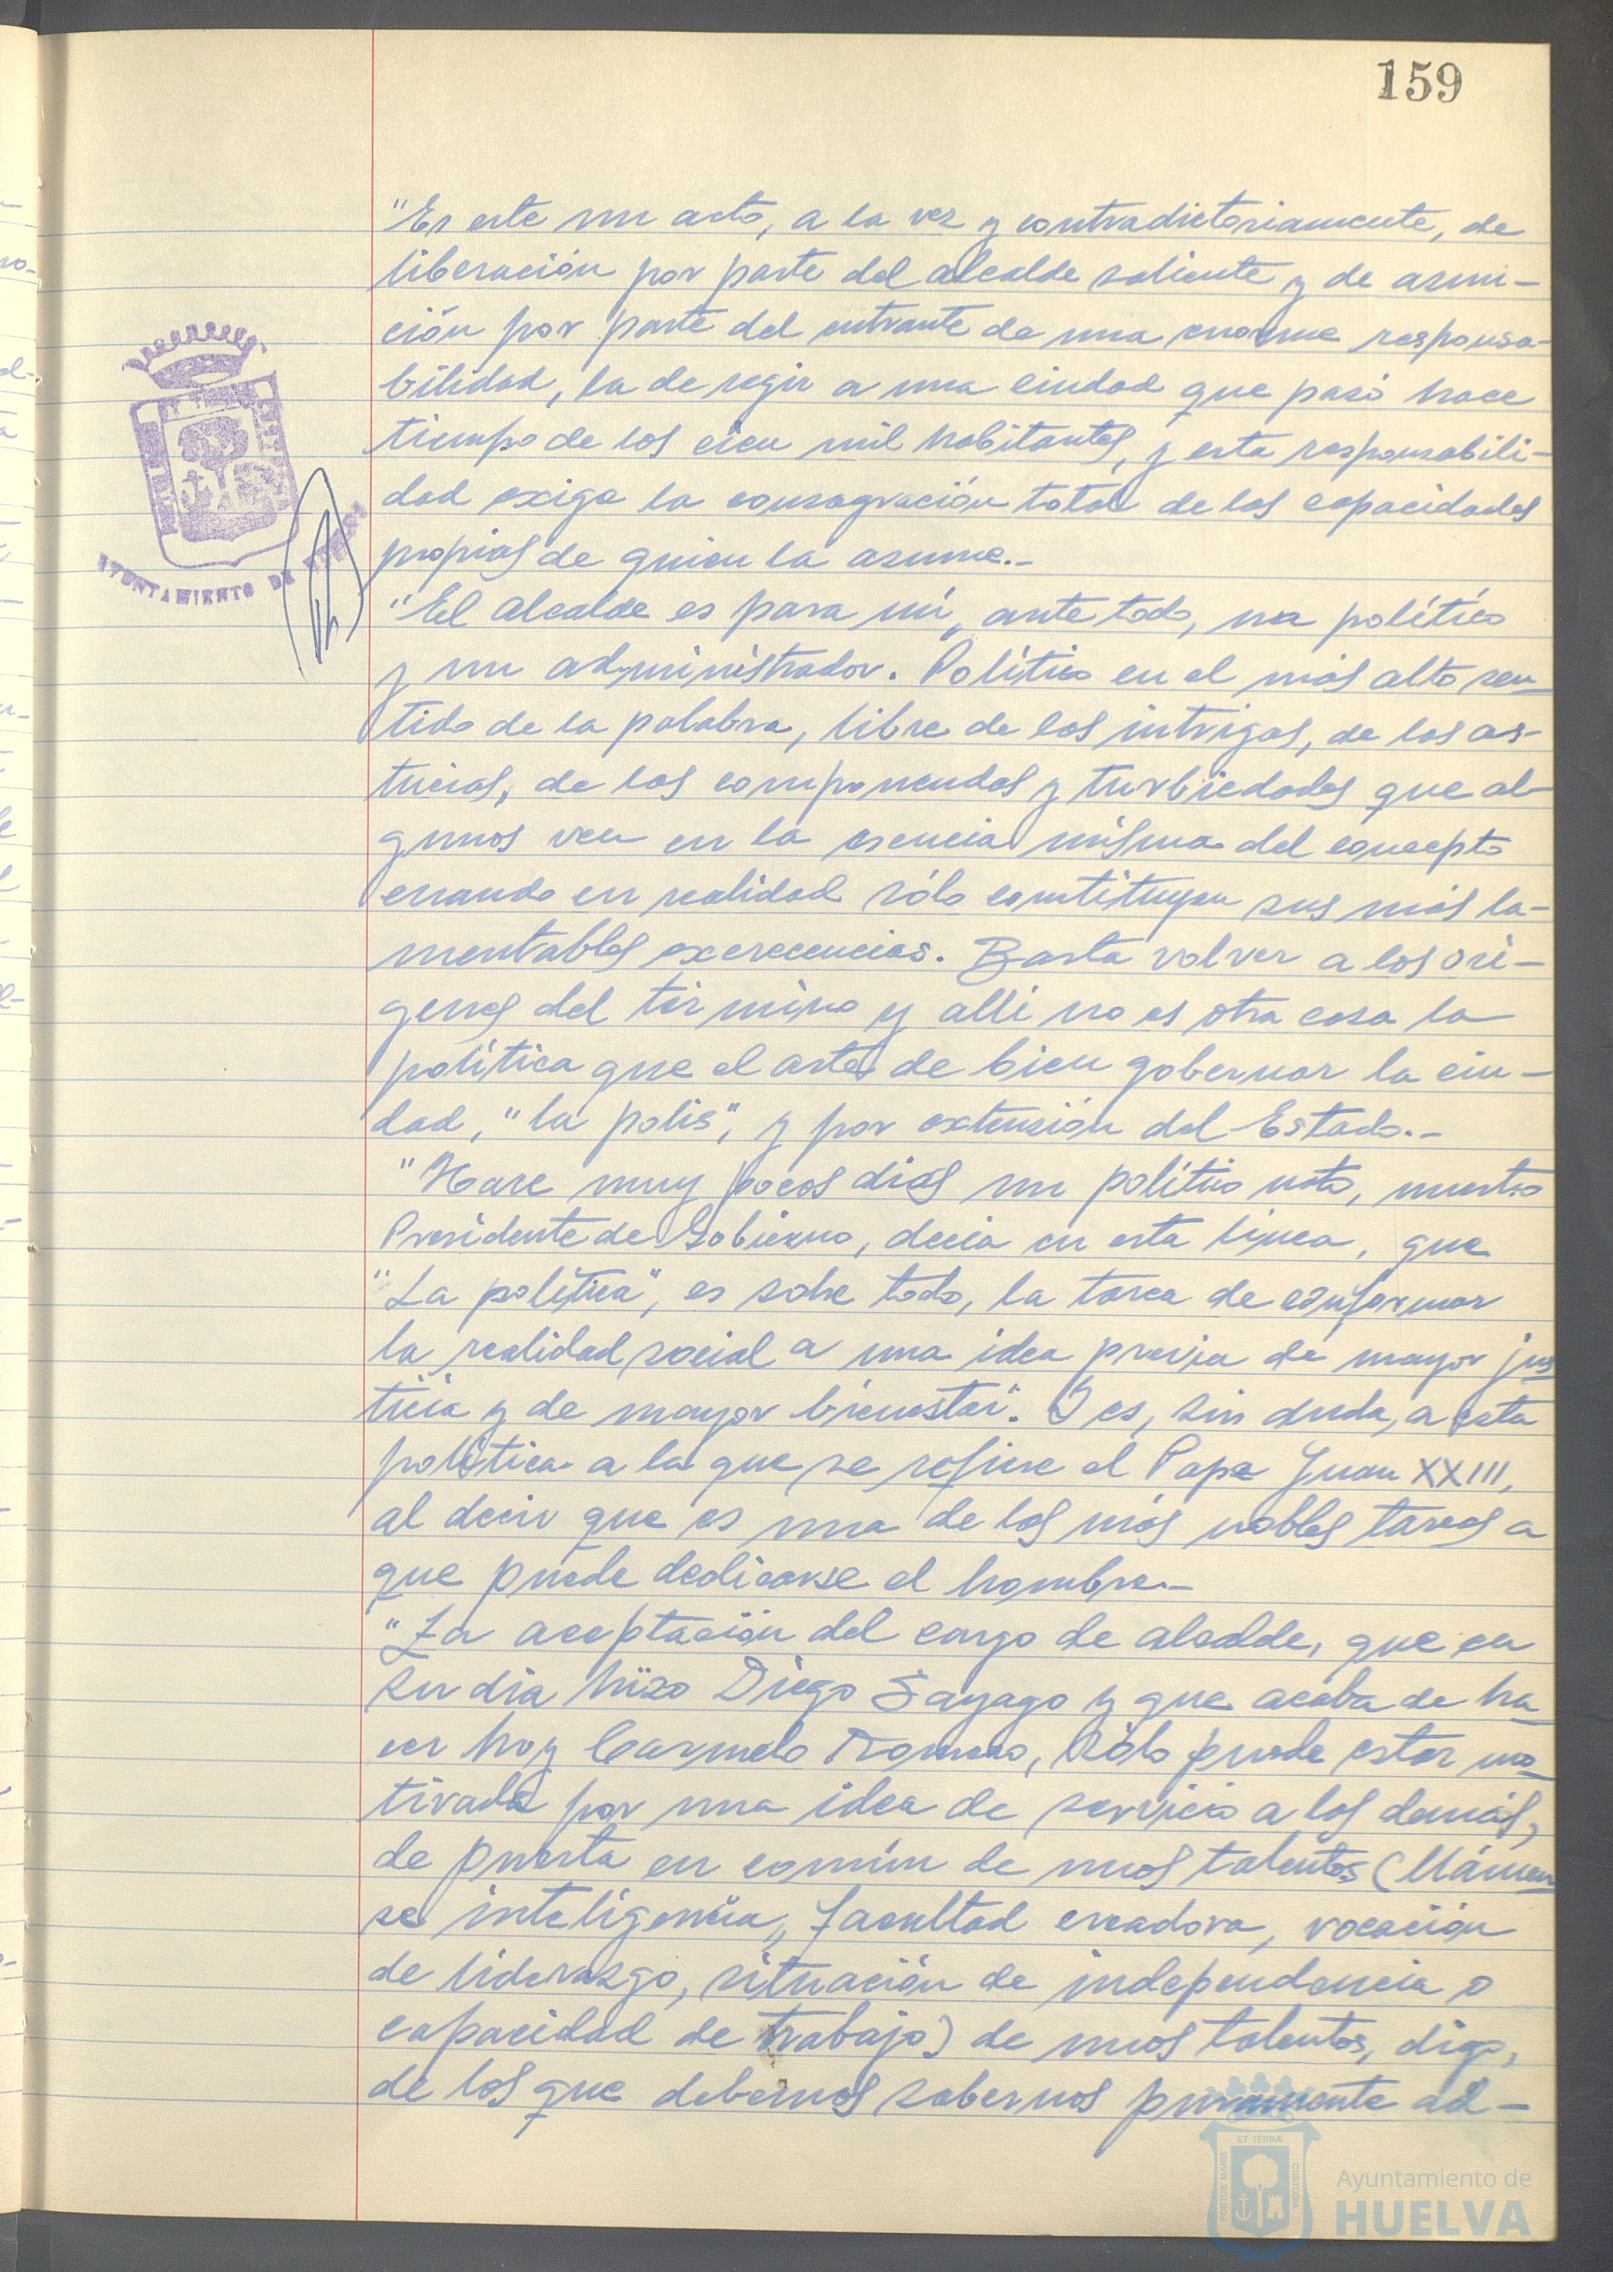 159
"Es este un acto, a la vez y contradictoriamente, de
liberación por parte del alcalde saliente y de asun-
ción por parte del entrante de una enorme responsa-
bilidad, la de regir a una ciudad que pasó hace
tiempo de los cien mil habitantes, y esta responsabili-
dad exige la consagración total de las capacidades
propias de quien la asume.-
"El alcalde es para mí, ante todo, un político
y un administrador. Político en el más alto sen-
tido de la palabra, libre de las intrigas, de las as-
tucias, de las componendas y turbiedades que al-
gunos ven en la esencia misma del concepto
cuando en realidad sólo constituyen sus más la-
mentables excrecencias. Basta volver a los orí-
genes del término y allí no es otra cosa la
política que el arte de bien gobernar la ciu-
dad, "la polis", y por extensión del Estado.-
"Hace muy pocos días un político nato, nuestro
Presidente de Gobierno, decía en esta línea, que
"La política", es sobre todo, la tarea de conformar
la realidad social a una idea previa de mayor jus
ticia y de mayor bienestar". Y es, sin duda, a esta
política a la que se refiere el Papa Juan XXIII,
al decir que es una de las más nobles tareas a
que puede dedicarse el hombre.-
"La aceptación del cargo de alcalde, que en
su día hizo Diego Sayago y que acaba de ha-
cer hoy Carmelo Romero, sólo puede estar mo-
tivada por una idea de servicio a los demás,
de puesta en común de unos talentos (llámen
se inteligencia, facultad creadora, vocación
de liderazgo, situación de independencia o
capacidad de trabajo) de unos talentos, digo,
de los que debemos sabernos puramente ad-
AYUNTAMIENTO DE
PORTUS MARIS
ET TERRAE
CUSTODIA
Ayuntamiento de
HUELVA